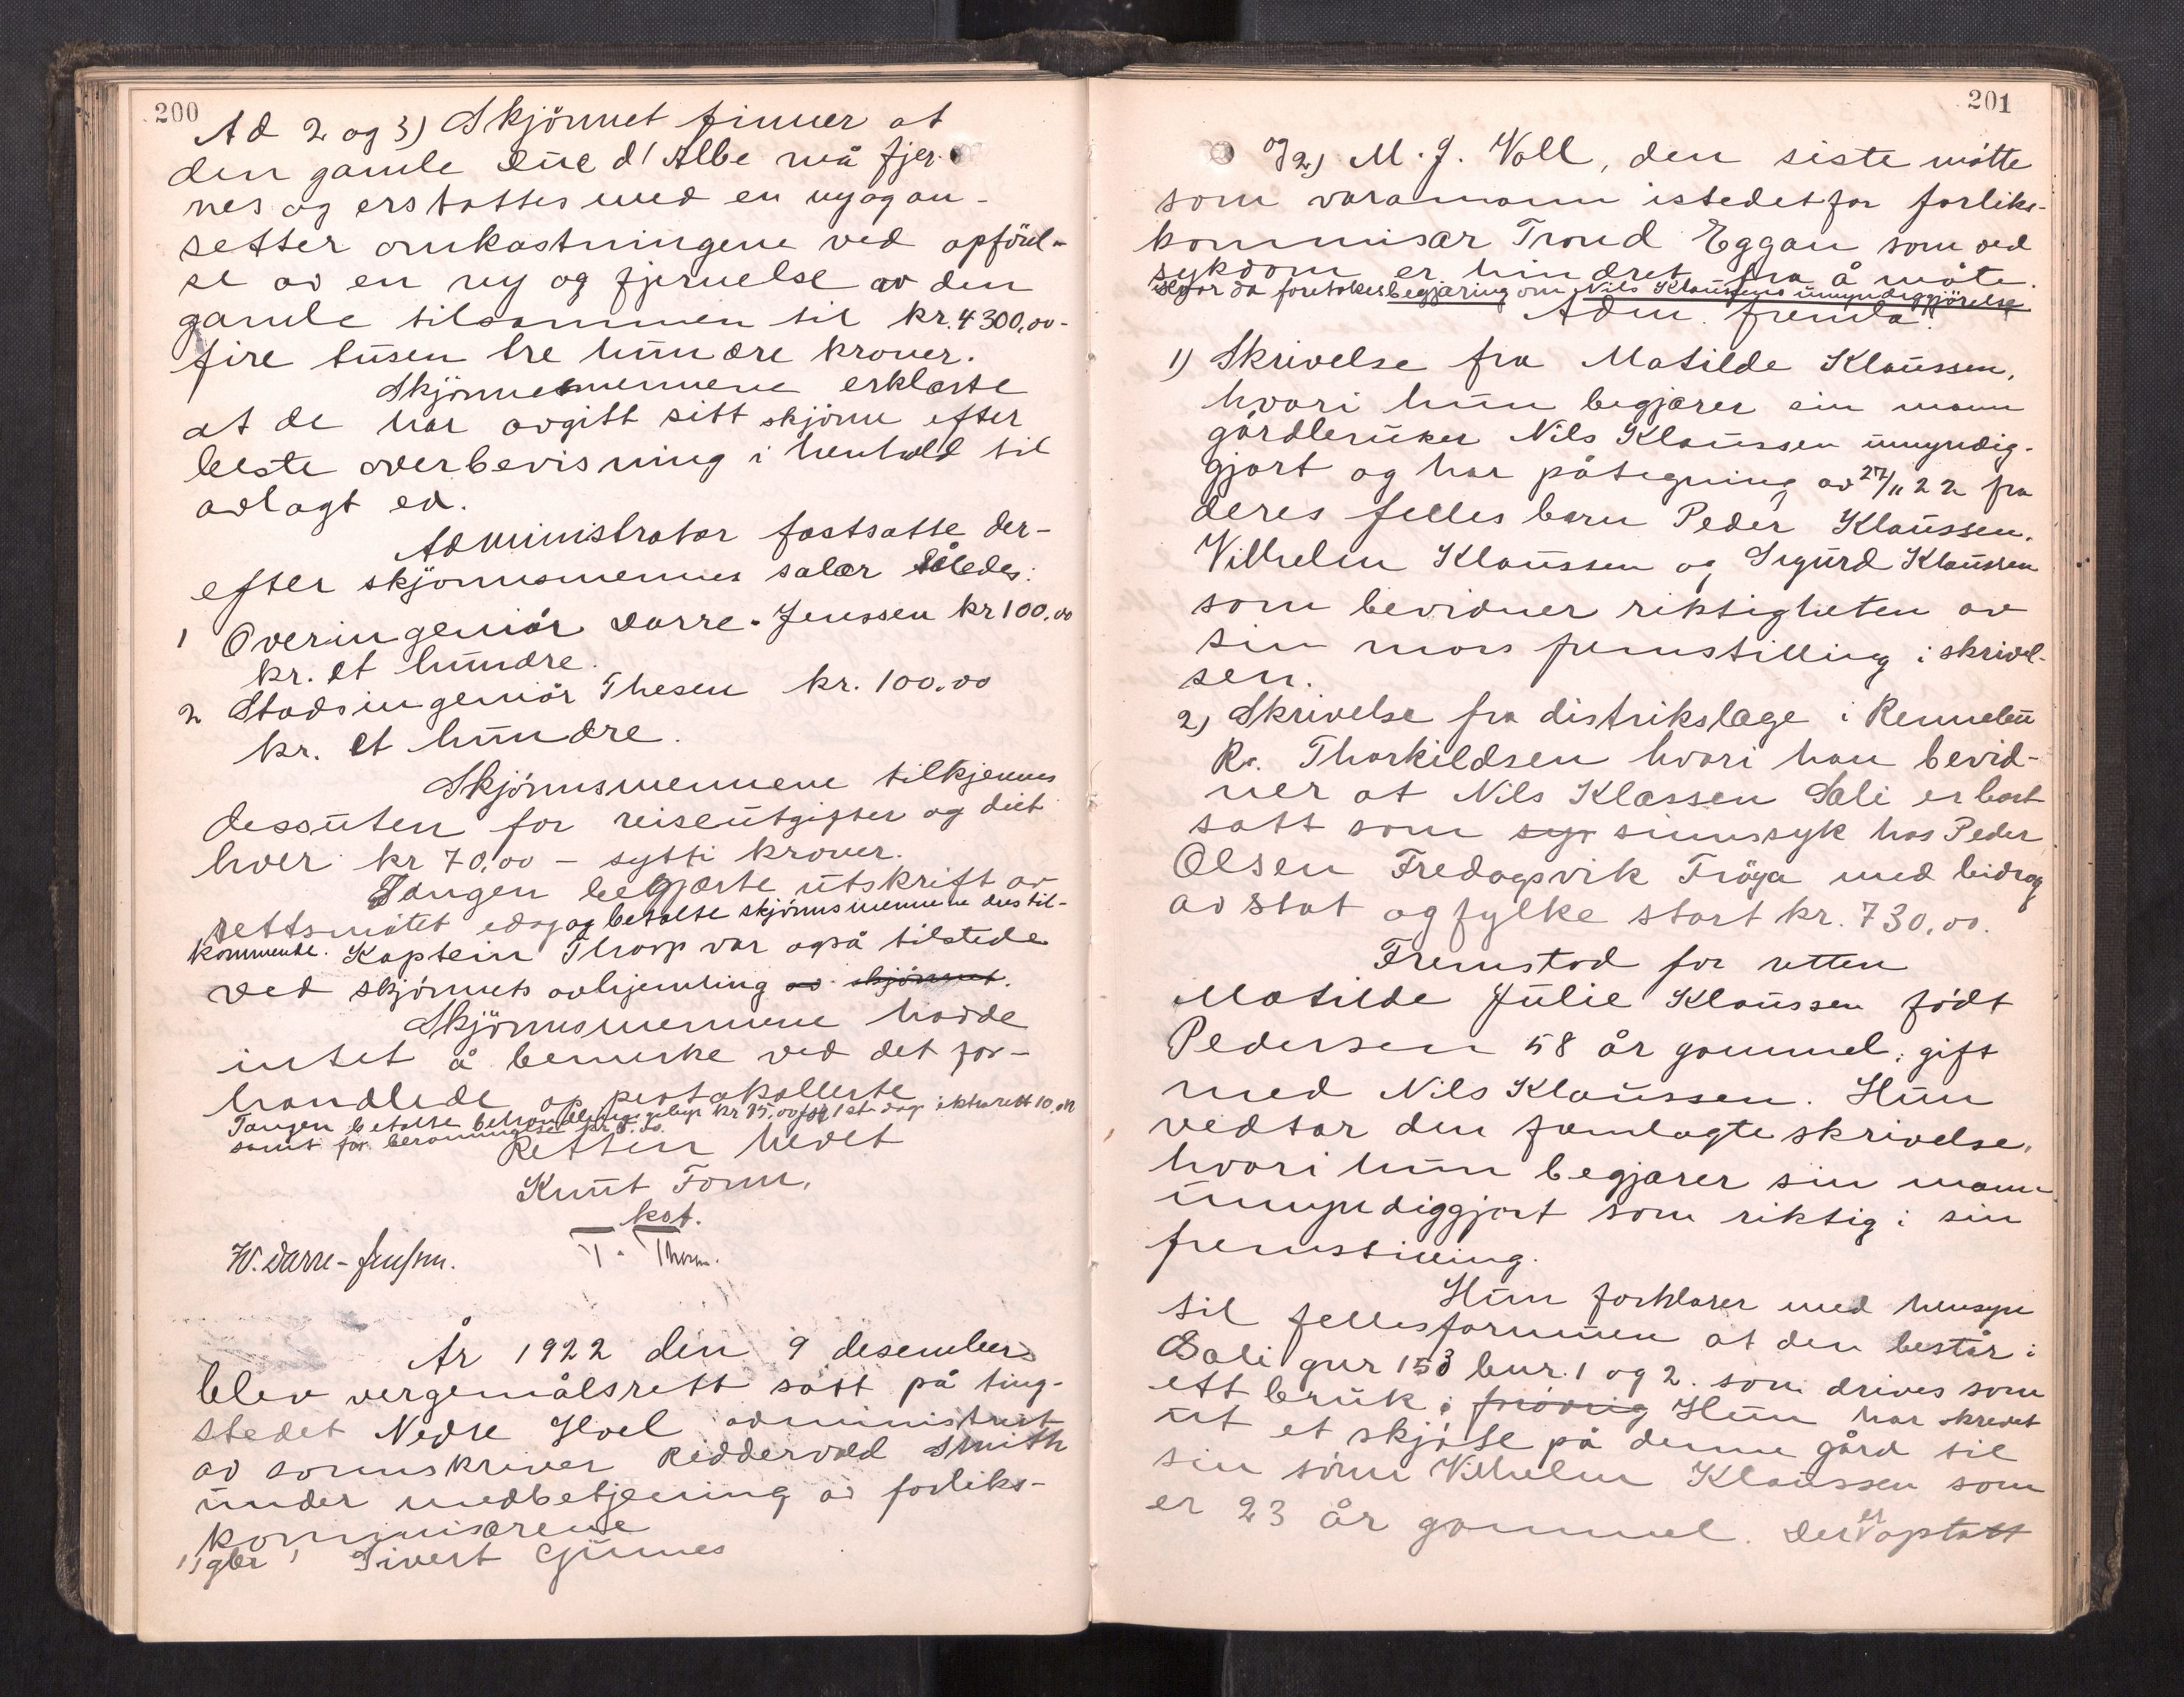 200
Ad 2 og 3) Skjönnet finner at
den gamle Duc d'Albe må fjer-
nes og erstattes med en ny og an-
setter omkostningene ved opförel-
se av en ny og fjernelse av den
gamle tilsammen til kr. 4300,00-
fire tusen tre hundre kroner.
Skjönnesmennene erklærte
at de har avgitt sitt skjönn efter
beste overbevisning i henhold til
avlagt ed.
Administrator fastsatte der-
efter skjönnsmennes salær således:
1 Overingeniör Darre-Jenssen kr 100.00
kr. et hundre.
2 Stadsingeniör Thesen kr. 100.00
kr. et hundre.
Skjönnsmennene tilkjennes
dessuten for reiseutgifter og diet
hver kr 70,00 - sytti kroner.
Tangen begjærte utskrift av
rettsmötet idag og betalte skjönnsmennene dens til-
kommende. Kaptein Thorp var også tilstede
ved skjönnets avhjemling av skjönnet.
Skjönnsmennene hadde
intet å bemerke ved det for-
handlede og protokollerte
Tangen betalte behandlingsgebyr kr 25,00 for 1 ste dag ekstrarett 10,00
samt for beramningelse kr 5.00.
Retten hevet
Knut Form,
kst.
W. Darre-Jenssen. T. Thesen.
År 1922 den 9 desember
blev vergemålsrett satt på ting-
stedet Nedre Hoel administrert
av sorenskriver Reddervold Smith
under medbetjening av forliks-
kommisærene
1) gbr Sivert Gunnes
201
og 2) M. J. Voll, den siste mötte
som varamann istedetfor forliks-
kommisær Trond Eggan som ved
sykdom er hindret fra å möte.
Der da foretokes begjæring om Nils Klaussens umyndiggjörelse
Adm. fremla:
1) Skrivelse fra Matilde Klaussen,
hvori hun begjærer sin mann
gårdbruker Nils Klaussen umyndig-
gjort og har påtegning av 27/11 22 fra
deres felles barn Peder Klaussen.
Vilhelm Klaussen og Sigurd Klaussen
som bevidner riktigheten av
sin mors fremstilling i skrivel-
sen.
2) Skrivelse fra distrikslæge i Rennebu
R. Thorkildsen hvori han bevid-
ner at Nils Klassen Sali er bort
satt som syr sinnssyk hos Peder
Olsen Fredagsvik Fröya med bidrag
av stat og fylke stort kr. 730,00.
Fremstod for retten
Matilde Julie Klaussen födt
Pedersen 58 år gammel, gift
med Nils Klaussen. Hun
vedtar den fremlagte skrivelse,
hvori hun begjærer sin mann
umyndiggjort som riktig i sin
fremstilling.
Hun forklarer med hensyn
til fellesformuen at den består i
Sali gnr 153 bnr. 1 og 2. som drives som
ett bruk i forövrig Hun har skrevet
ut et skjöte på denne gård til
sin sönn Vilhelm Klaussen som
er 23 år gammel. Der er optatt